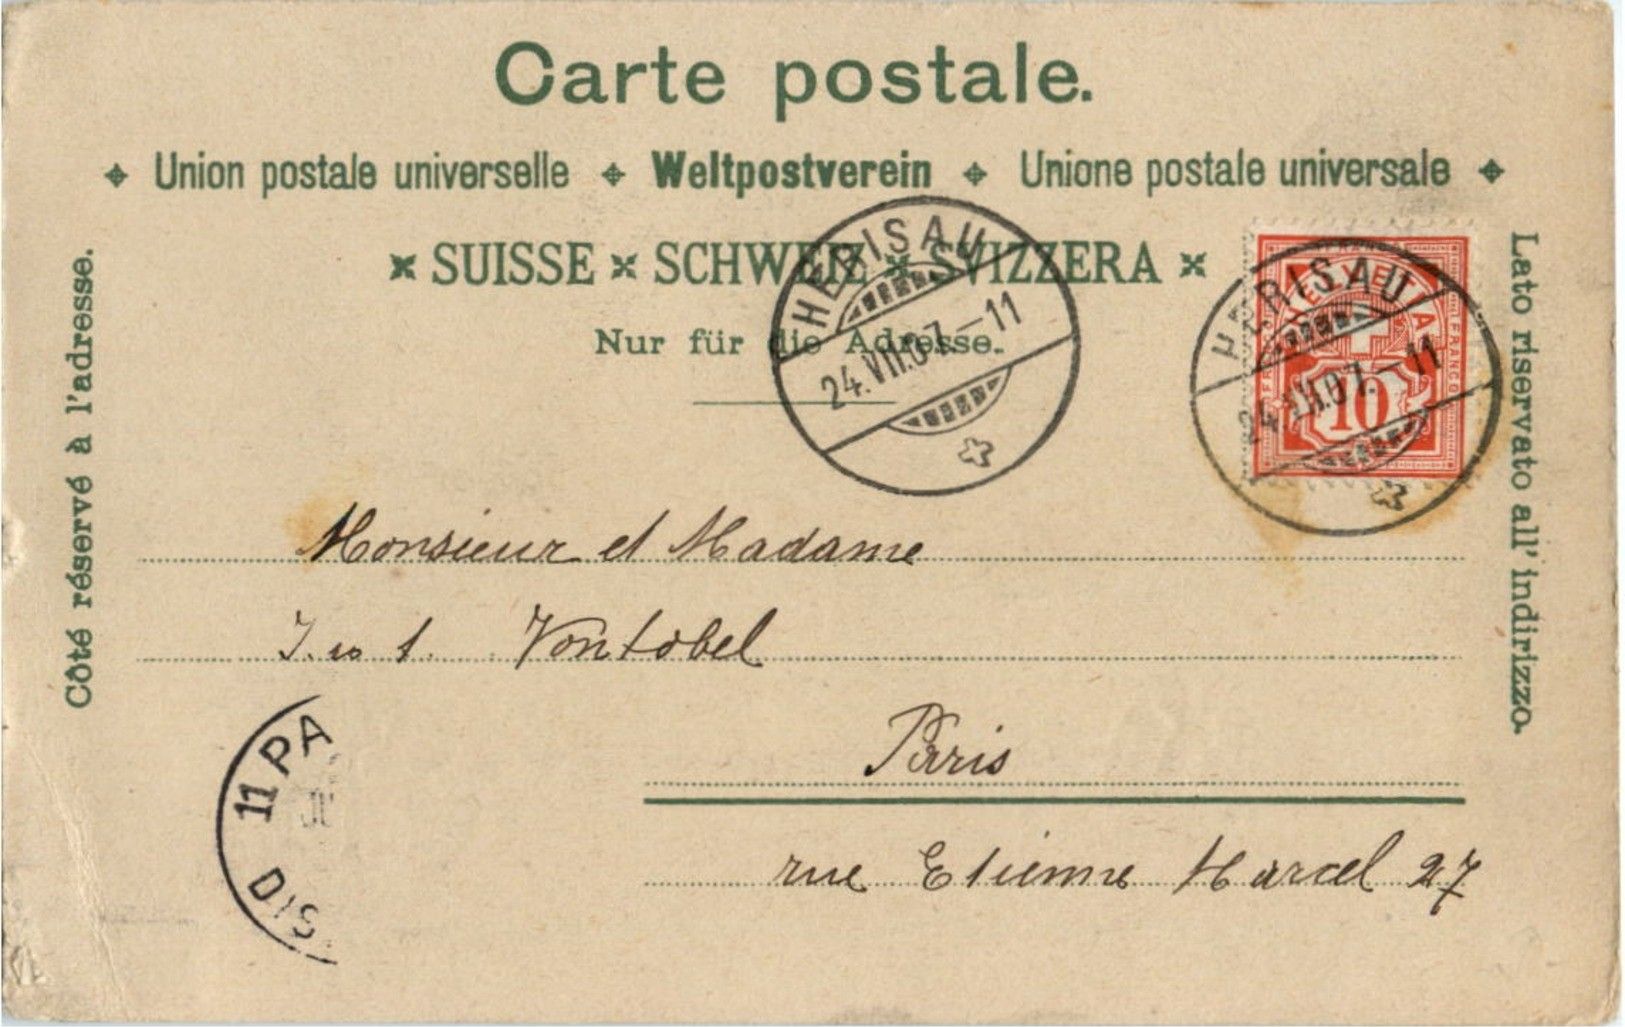 Carte postale.
Union postale universelle Weltpostverein Unione postale universale
SUISSE SCHWEIZ SVIZZERA
Nur für die Adresse.
Côté réservé à l'adresse.
Lato riservato all' indirizzo.
HERISAU
24.VII.07.–11
HERISAU
24.VII.07.–11
HELVETIA
FRANCO
10
Monsieur et Madame
Vontobel
Paris
rue Etienne Marcel 27
11 PA
DIS